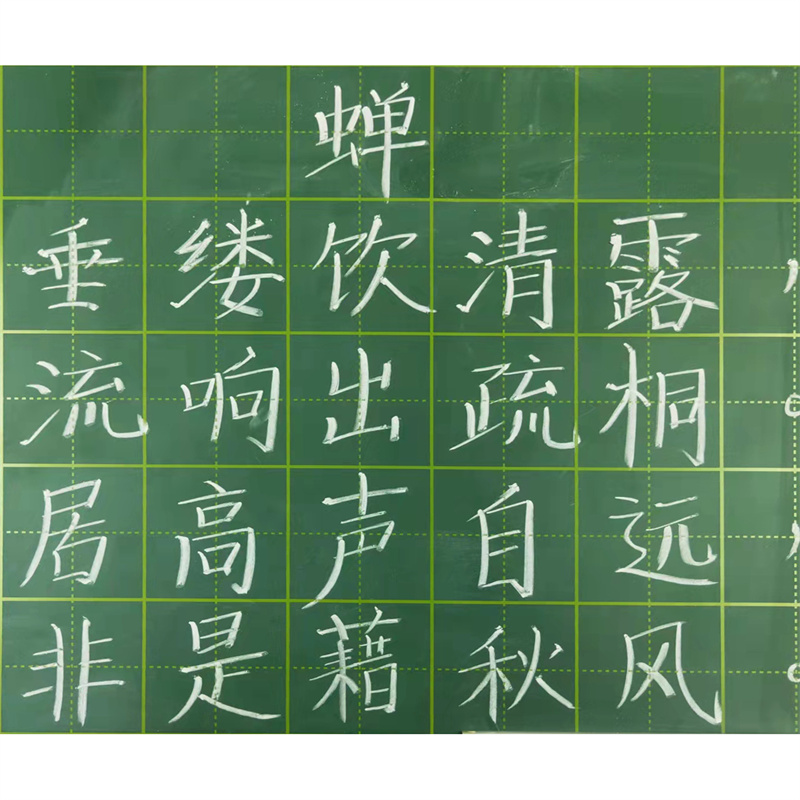 蝉
垂缕饮清露，
流响出疏桐。
居高声自远，
非是藉秋风。